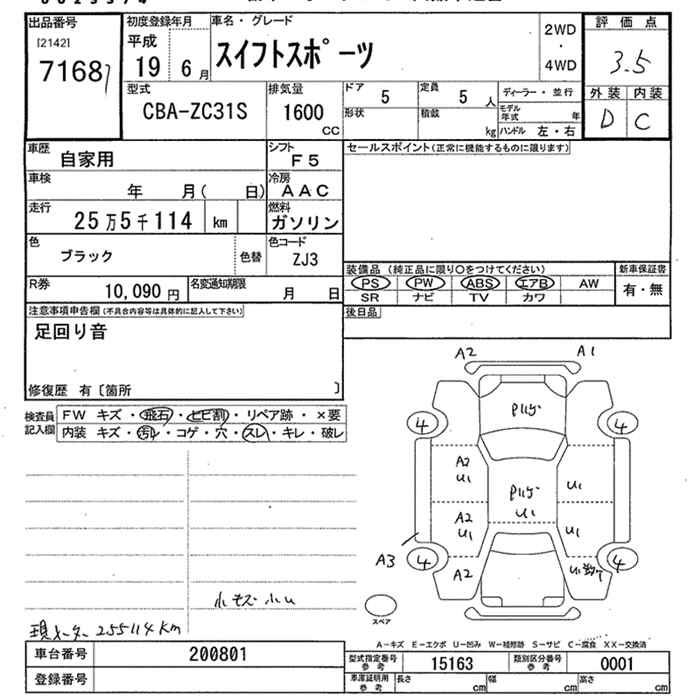 出品番号 初度登録年月 車名・グレード 2WD ・ 4WD 評価点
[2142] 7168 平成 19 6月 スイフトスポーツ 3.5
型式 排気量 ドア 5 定員 5人 ディーラー・並行 外装 内装
CBA-ZC31S 1600 CC 形状 積載 kg モデル年式 年 D C
ハンドル 左・右
車歴 自家用 シフト F5 セールスポイント(正常に機能するものに限ります)
車検 年 月( 日) 冷房 AAC
走行 25万5千114 km 燃料 ガソリン
色 ブラック 色替 色コード ZJ3
装備品 (純正品に限り○をつけてください) 新車保証書
R券 10,090円 名変通知期限 月 日 PS PW ABS エアB AW 有・無
SR ナビ TV カワ
注意事項申告欄(不具合内容等は具体的に記入して下さい) 後日品
足回り音
修復歴 有〔箇所 〕
検査員記入欄 FW キズ・飛石・ヒビ割・リペア跡・×要
内装 キズ・汚レ・コゲ・穴・スレ・キレ・破レ
A2 A1
4 4
A2 U1 U1
U1
A2 U1 U1
A3 4 4
A2 U1
スペア
小キズ 小U
現メーター 255114km
A-キズ E-エクボ U-凹み W-補修跡 S-サビ C-腐食 XX-交換済
車台番号 200801 型式指定番号 参考 15163 類別区分番号 参考 0001
登録番号 車庫証明用 参考 長さ cm 幅 cm 高さ cm